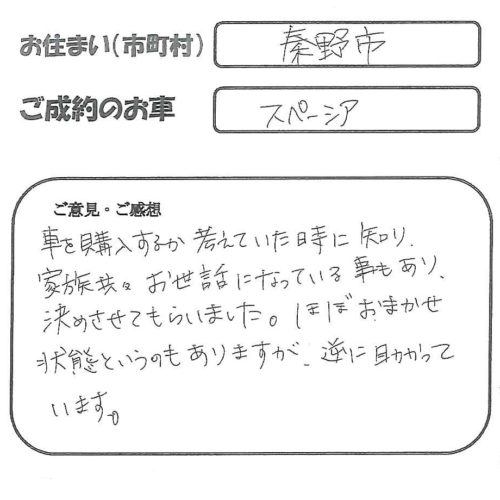 お住まい(市町村) 秦野市
ご成約のお車 スペーシア
ご意見・ご感想
車を購入するか考えていた時に知り、
家族共々お世話になっている事もあり、
決めさせてもらいました。ほぼおまかせ
状態というのもありますが、逆に助かって
います。